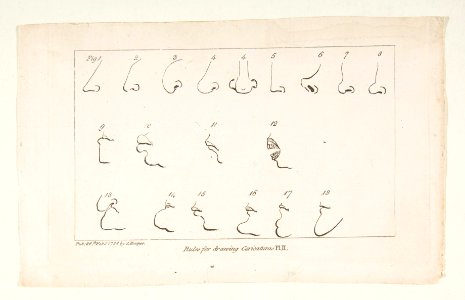 Fig 1. 2 3 4 4 5 6 7 8
9 10 11 12
13 14 15 16 17 18
by S. Hooper
Rules for drawing Caricatures Pl. II.